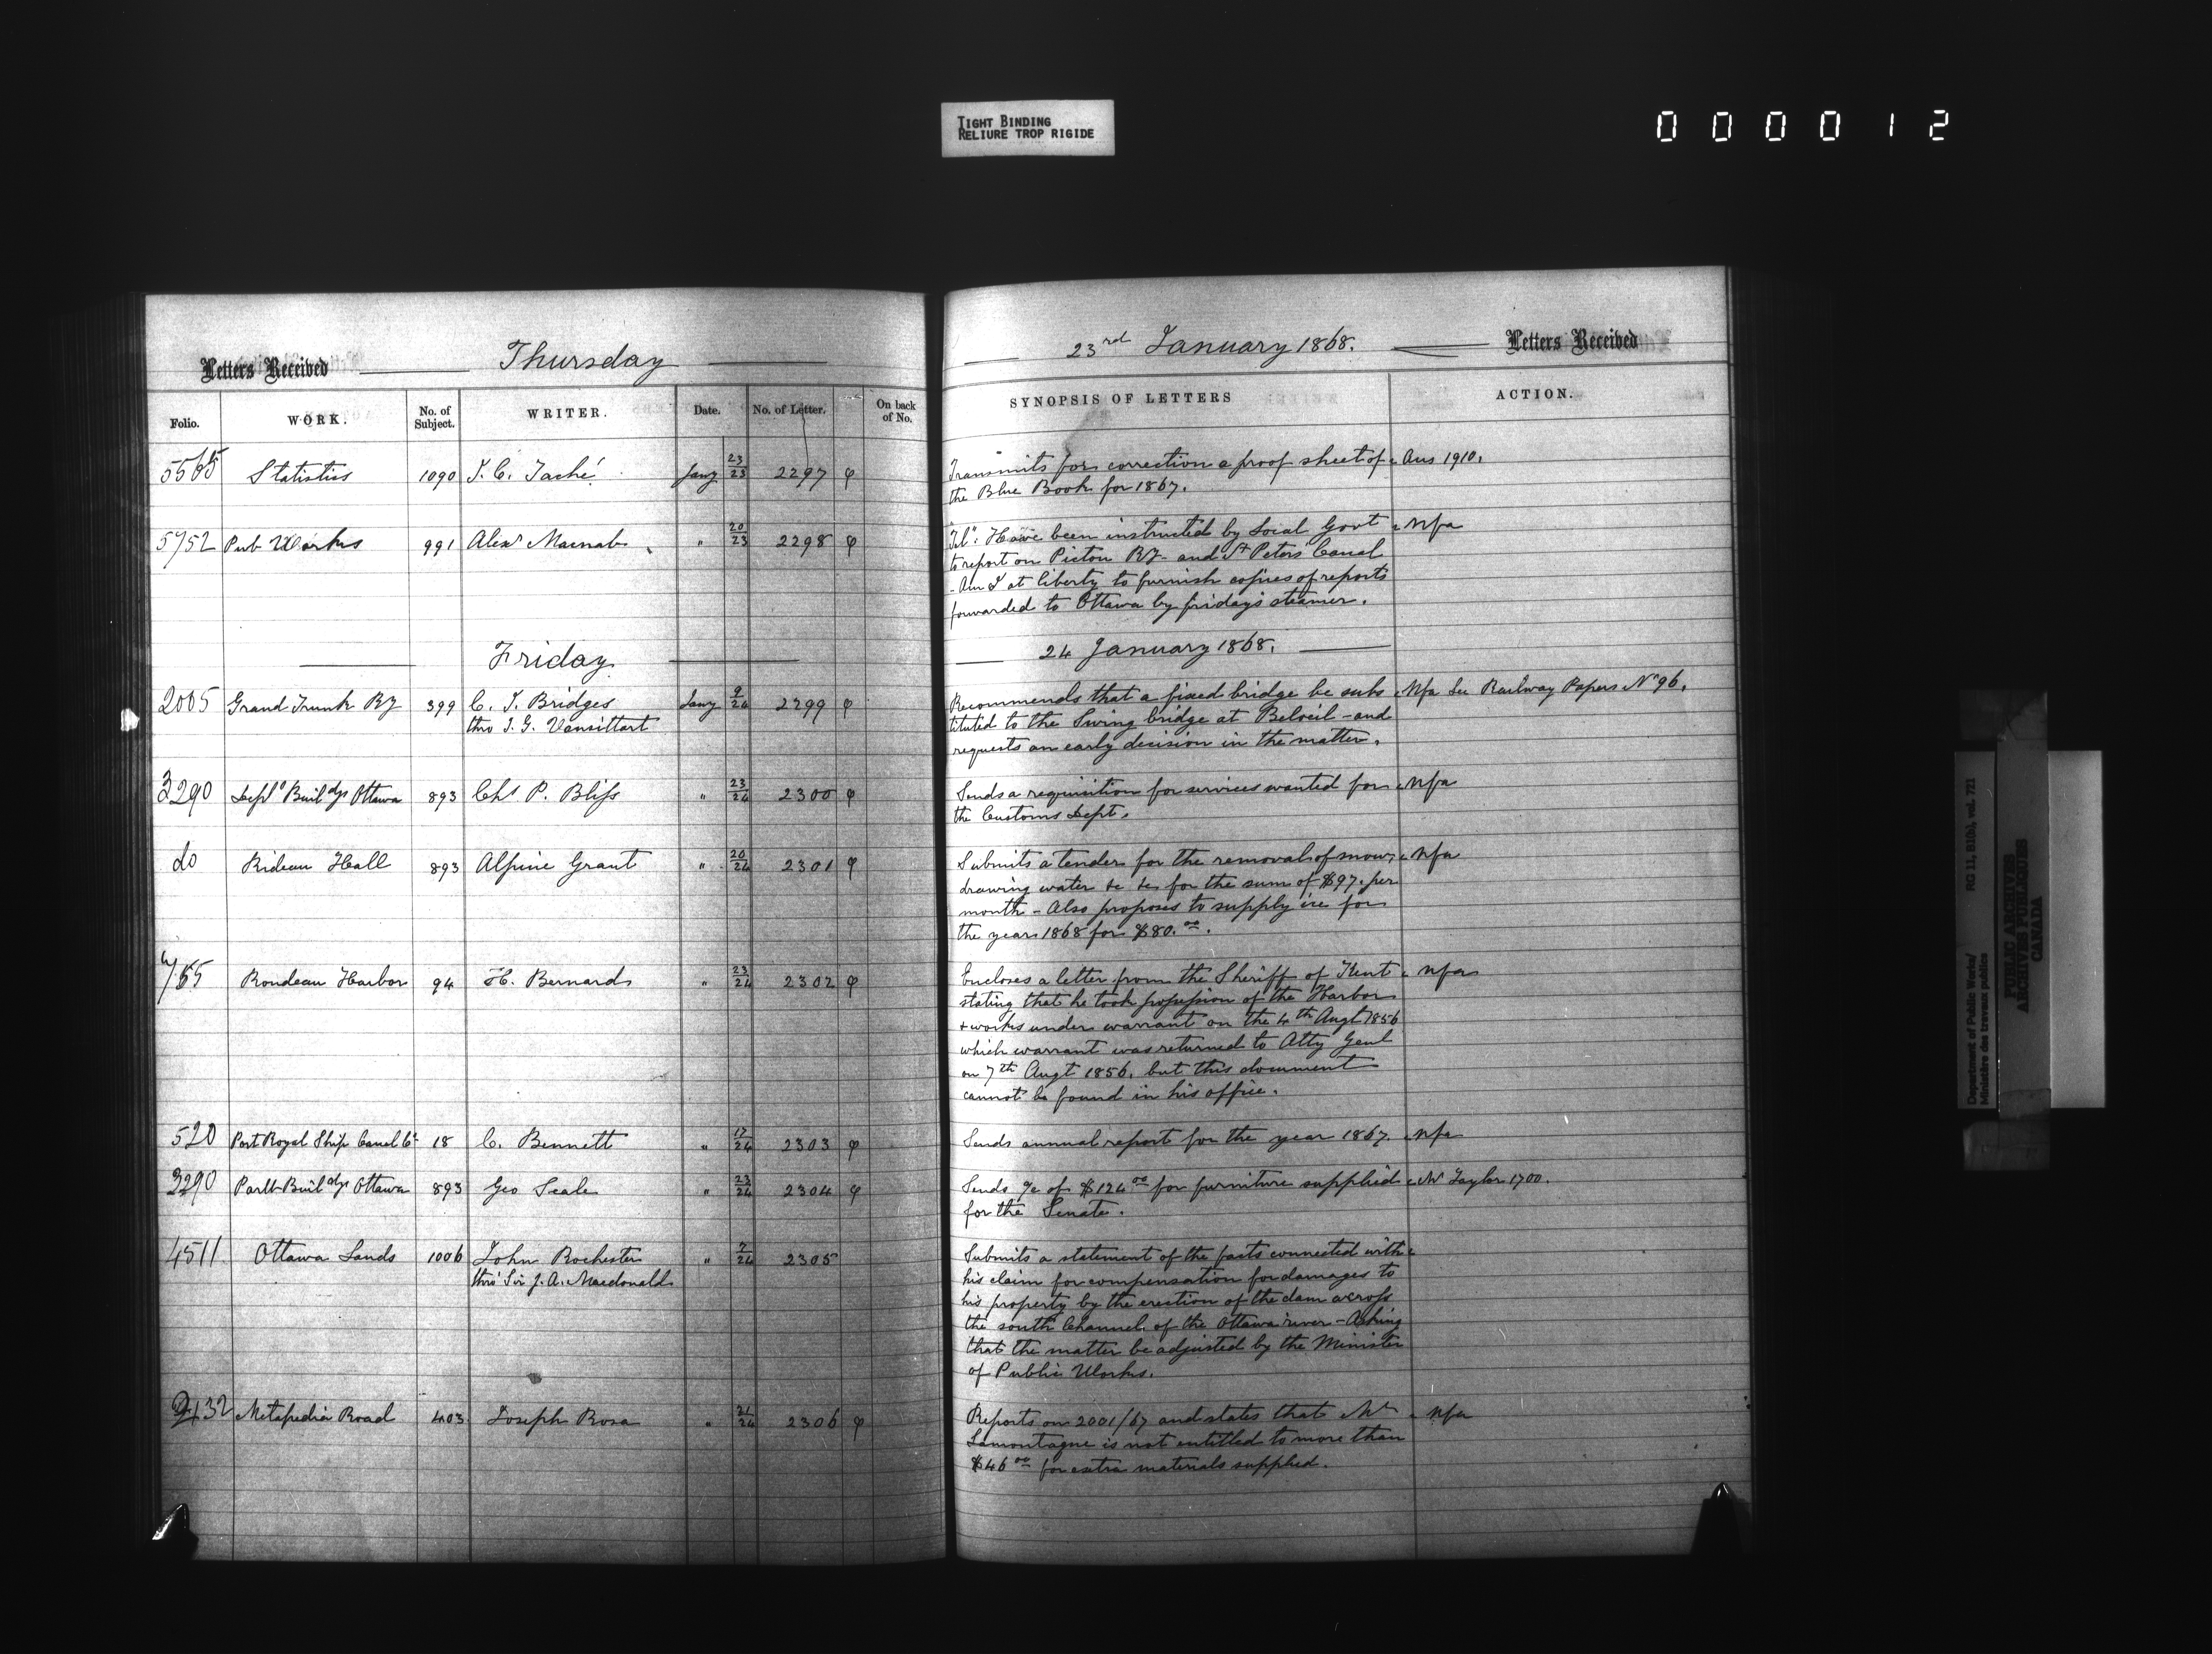 TIGHT BINDING
RELIURE TROP RIGIDE
000012
Letters Received Thursday
Folio. WORK. No. of Subject. WRITER. Date. No. of Letter. On back of No.
5565 Statistics 1090 J. C. Taché Jany 23/23 2297 φ
5752 Pub Works 991 Alexr Macnab " 20/23 2298 φ
Friday
2005 Grand Trunk Ry 399 C. J. Bridges Jany 9/24 2299 φ
thro J. G. Vansittart
3290 Deptl Buildgs Ottawa 893 Chs P. Bliss " 23/24 2300 φ
do Rideau Hall 893 Alpine Grant " 20/24 2301 φ
Rondeau Harbor 94 H. Bernard " 23/24 2302 φ
520 Port Royal Ship Canal Co 18 C. Bennett " 17/24 2303 φ
3290 Parlt Buildgs Ottawa 893 Geo Seale " 23/24 2304 φ
4511 Ottawa Lands 1006 John Rochester " 7/24 2305
thro' Sir J. A. Macdonald
Metapedia Road 403 Joseph Rosa " 21/24 2306 φ
23rd January 1868. Letters Received
SYNOPSIS OF LETTERS ACTION.
Transmits for correction a proof sheet of Ans 1910.
the Blue Book for 1867.
Tel". Have been instructed by Local Govt Nfa
to report on Picton Ry and St Peters Canal
- Am I at liberty to furnish copies of reports
forwarded to Ottawa by friday's steamer.
24 January 1868.
Recommends that a fixed bridge be subs Nfa See Railway Papers No 96.
tituted to the Swing bridge at Beloeil - and
requests an early decision in the matter.
Sends a requisition for services wanted for Nfa
the Customs Dept.
Submits a tender for the removal of snow, Nfa
drawing water &c &c for the sum of $97. per
month - Also proposes to supply ice for
the year 1868 for $80.00.
Encloses a letter from the Sheriff of Kent Nfa
stating that he took possession of the Harbor
& works under warrant on the 4th Augt 1856
which warrant was returned to Atty Genl
on 7th Augt 1856. but this document
cannot be found in his office.
Sends annual report for the year 1867. Nfa
Sends a/c of $124 00 for furniture supplied Mr Taylor 1700.
for the Senate.
Submits a statement of the facts connected with
his claim for compensation for damages to
his property by the erection of the dam across
the south Channel of the Ottawa river - Asking
that the matter be adjusted by the Minister
of Public Works.
Reports on 2001/67 and states that Mr Nfa
Lamontagne is not entitled to more than
$46 00 for extra materials supplied.
Department of Public Works/ RG 11, B1(b), vol. 721
Ministère des travaux publics
PUBLIC ARCHIVES
ARCHIVES PUBLIQUES
CANADA